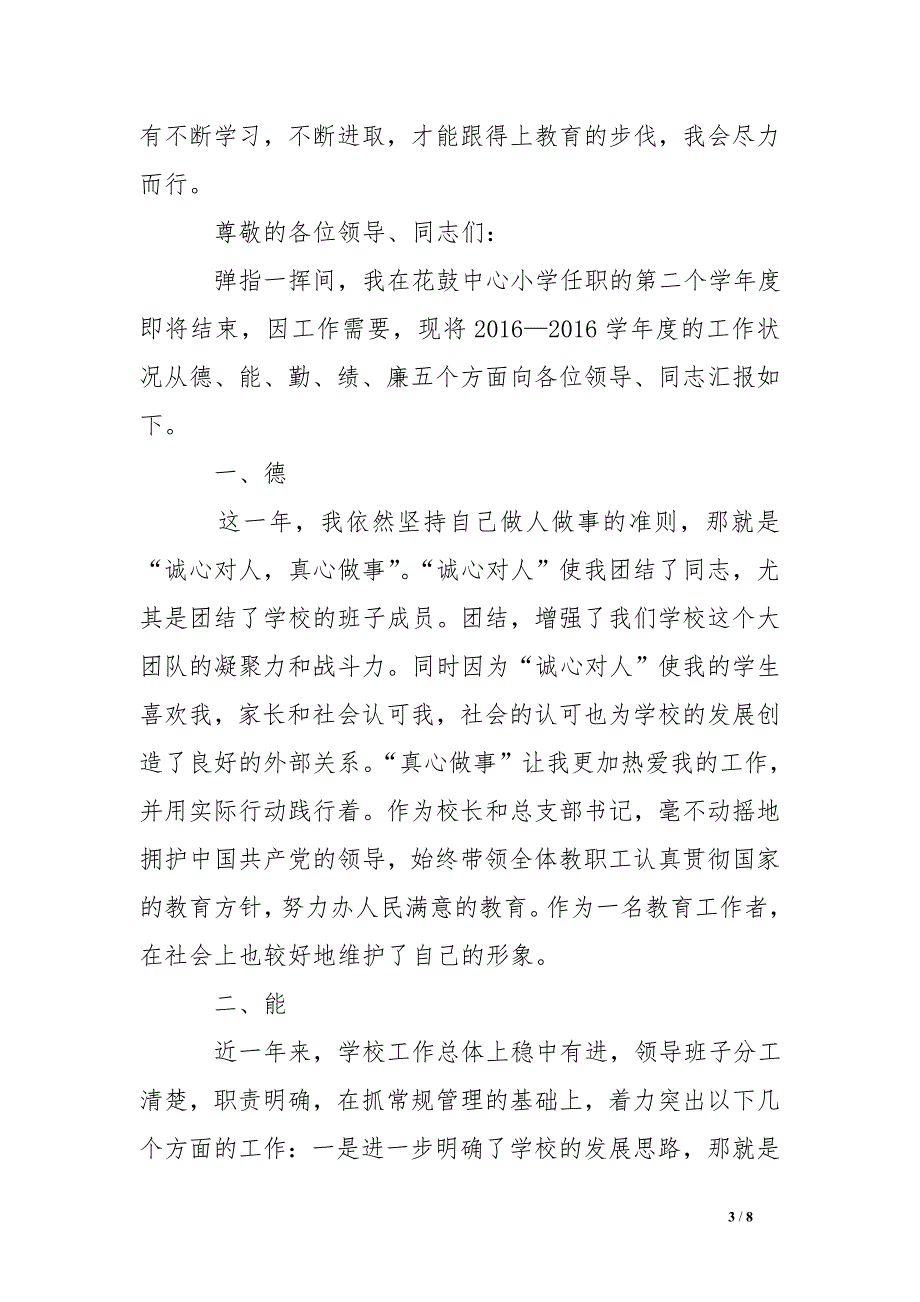 有不断学习，不断进取，才能跟得上教育的步伐，我会尽力
而行。
尊敬的各位领导、同志们：
弹指一挥间，我在花鼓中心小学任职的第二个学年度
即将结束，因工作需要，现将 2016—2016 学年度的工作状
况从德、能、勤、绩、廉五个方面向各位领导、同志汇报如
下。
一、德
这一年，我依然坚持自己做人做事的准则，那就是
“诚心对人，真心做事”。“诚心对人”使我团结了同志，尤
其是团结了学校的班子成员。团结，增强了我们学校这个大
团队的凝聚力和战斗力。同时因为“诚心对人”使我的学生
喜欢我，家长和社会认可我，社会的认可也为学校的发展创
造了良好的外部关系。“真心做事”让我更加热爱我的工作，
并用实际行动践行着。作为校长和总支部书记，毫不动摇地
拥护中国共产党的领导，始终带领全体教职工认真贯彻国家
的教育方针，努力办人民满意的教育。作为一名教育工作者，
在社会上也较好地维护了自己的形象。
二、能
近一年来，学校工作总体上稳中有进，领导班子分工
清楚，职责明确，在抓常规管理的基础上，着力突出以下几
个方面的工作：一是进一步明确了学校的发展思路，那就是
3 / 8